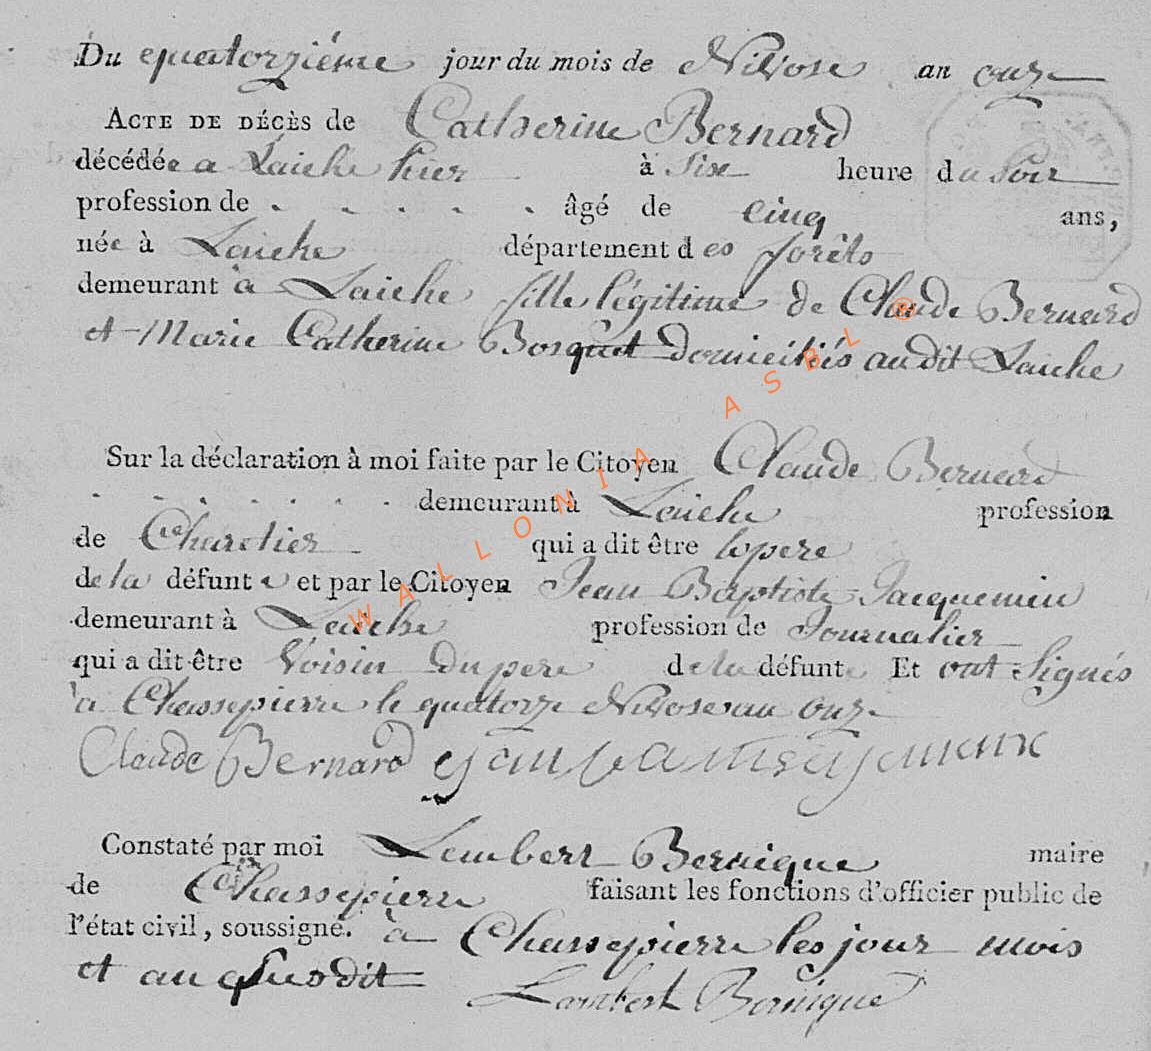 Du quatorziéme jour du mois de Nivose an onze
ACTE DE DÉCÈS de Catherine Bernard
décédée a Laiche hier à Six heure du Soir
profession de . . . . . âgé de cinq ans,
née à Laiche département des forêts
demeurant à Laiche fille légitime de Claude Bernard
et Marie Catherine Bosquet domiciliés audit Laiche
Sur la déclaration à moi faite par le Citoyen Claude Bernard
. . . . . . . demeurant à Laiche profession
de Chartier qui a dit être le pere
de la défunte et par le Citoyen Jean Baptiste Jacquemin
demeurant à Laiche profession de Journalier
qui a dit être Voisin du pere de la défunte Et ont Signés
à Chassepierre le quatorze Nivose an onze
Claude Bernard
Constaté par moi Lambert Bernique maire
de Chassepierre faisant les fonctions d'officier public de
l'état civil, soussigné. à Chassepierre les jour mois
et an que dit
Lambert Bernique
WALLONIA ASBL ®